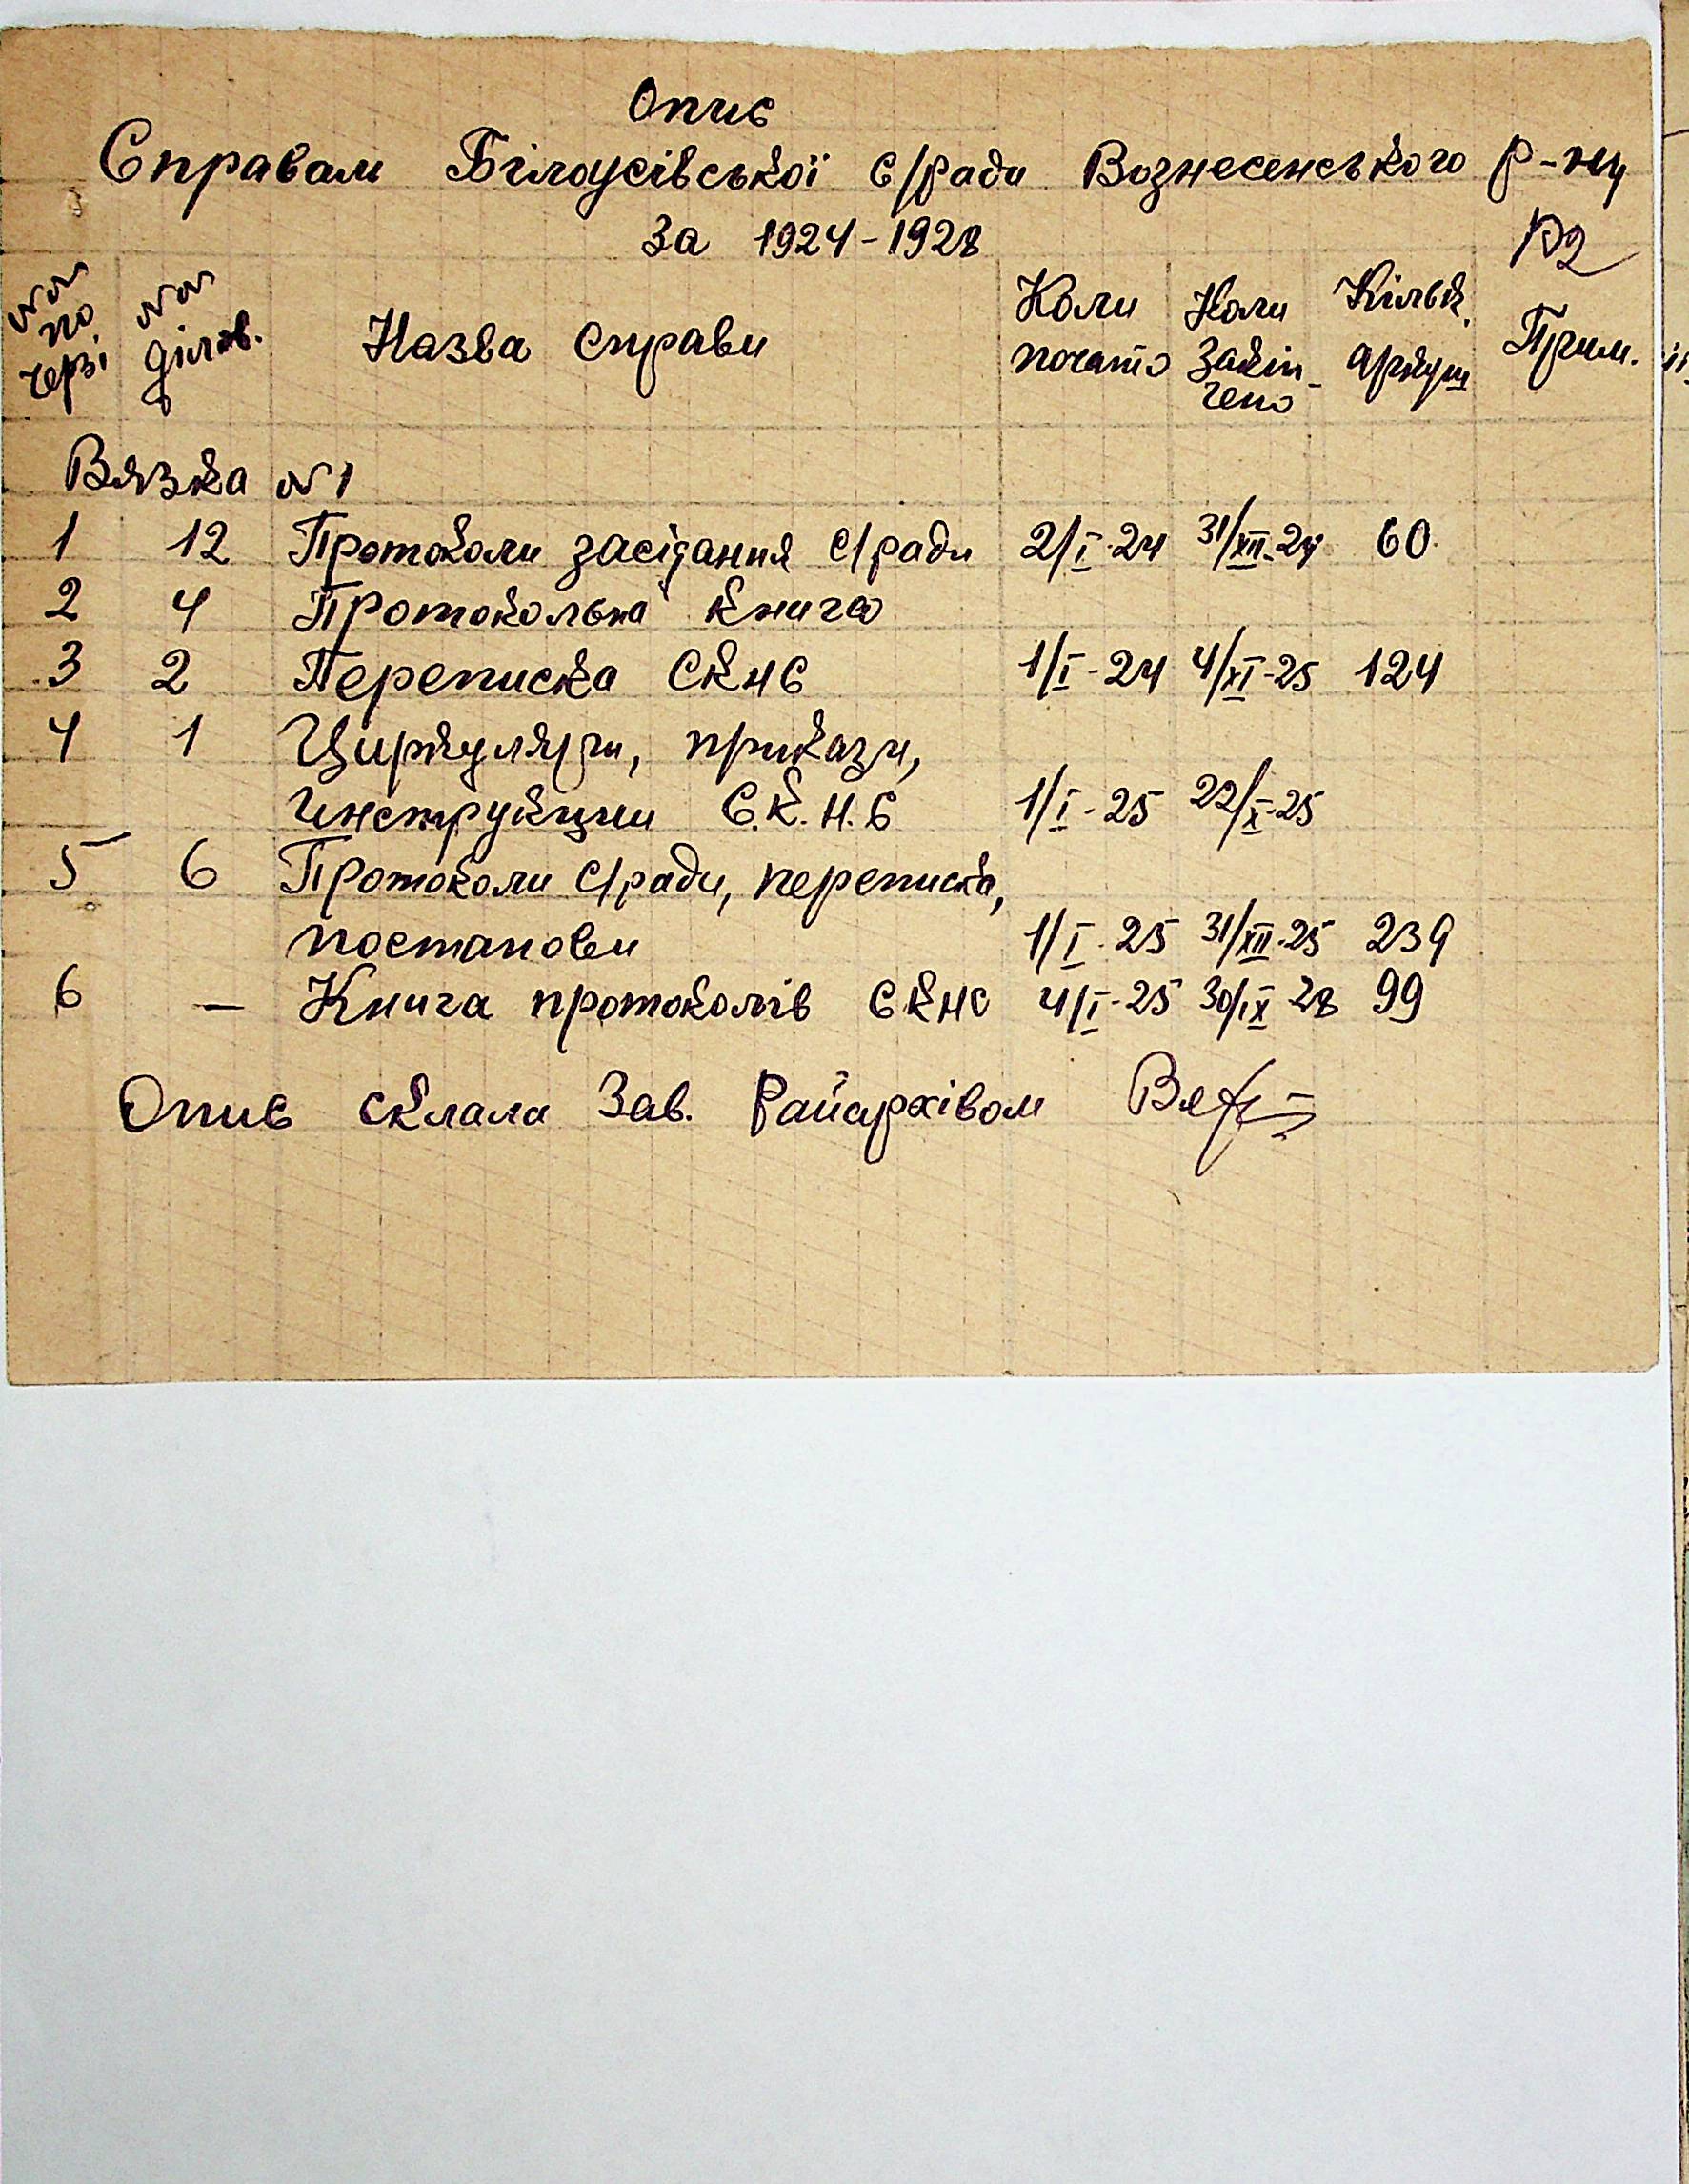 Опис
Справам Білоусівської с/ради Вознесенського р-ну
За 1924-1928
№№ по черзі №№ Назва справи Коли почато Коли закін-чено Кільк. аркуш Прим.
Вязка №1
1 12 Протоколи засідання с/ради 2/I-24 31/XII-24 60
2 4 Протокольна книга
3 2 Переписка СКНС 1/I-24 4/XI-25 124
4 1 Циркуляри, прикази,
инструкции С.К.Н.С 1/I-25 22/X-25
5 6 Протоколи с/ради, переписка,
постанови 1/I-25 31/XII-25 239
6 — Книга протоколів СКНС 4/I-25 30/IX 28 99
Опис склала Зав. Райархівом